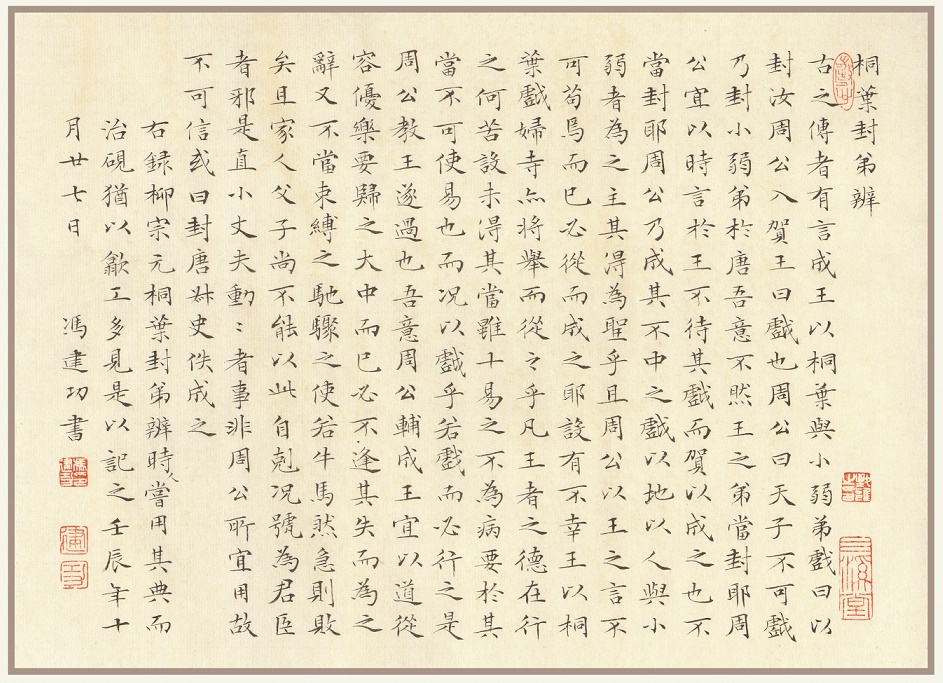 桐葉封弟辨
古之傳者有言成王以桐葉與小弱弟戲曰以
封汝周公入賀王曰戲也周公曰天子不可戲
乃封小弱弟於唐吾意不然王之弟當封耶周
公宜以時言於王不待其戲而賀以成之也不
當封耶周公乃成其不中之戲以地以人與小
弱者為之主其得為聖乎且周公以王之言不
可苟焉而已必從而成之耶設有不幸王以桐
葉戲婦寺亦將舉而從之乎凡王者之德在行
之何若設未得其當雖十易之不為病要於其
當不可使易也而况以戲乎若戲而必行之是
周公教王遂過也吾意周公輔成王宜以道從
容優樂要歸之大中而已必不逢其失而為之
辭又不當束縛之馳驟之使若牛馬然急則敗
矣且家人父子尚不能以此自剋况號為君臣
者邪是直小丈夫動〻者事非周公所宜用故
不可信或曰封唐叔史佚成之
右錄柳宗元桐葉封弟辨時嘗用其典而
治硯猶以歙工多見是以記之壬辰年十
月廿七日 馮建功書